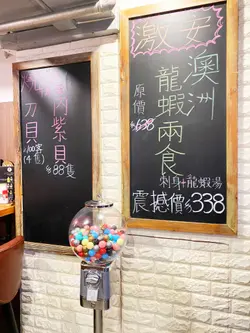 刀貝
(4隻)
肉紫貝
$88隻
激安
澳洲
龍蝦兩食
原價
$638
刺身+龍蝦湯
震撼價$338